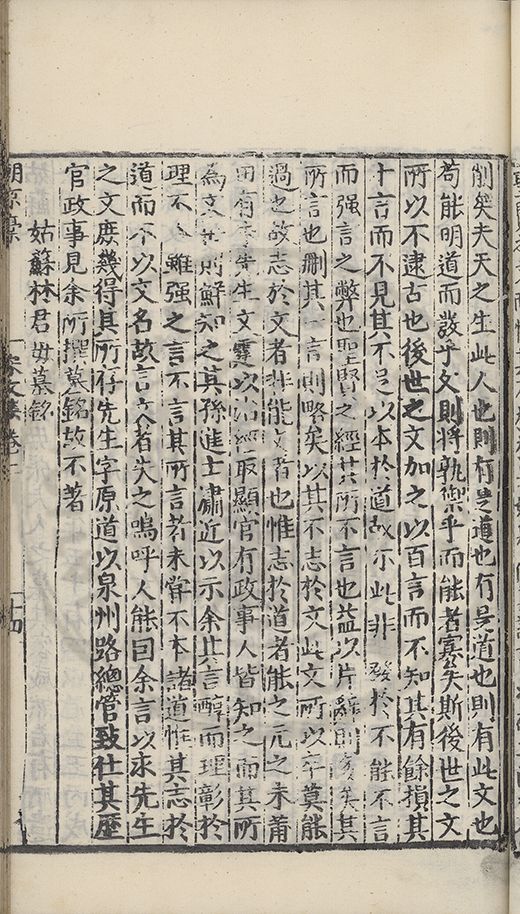 削矣夫天之生此人也則有是道也有是道也則有此文也
苟能明道而發乎文則將孰禦乎而能者寡矣斯後世之文
所以不逮古也後世之文加之以百言而不知其有餘損其
十言而不見其不足以本於道故示此非發於不能不言
而强言之弊也聖賢之經其所不言也益以片辭則贅矣其
所言也刪其一言則略矣以其不志於文此文所以卒莫能
過也故志於文者非能文者也惟志於道者能之元之末莆
田有 先生文 以 顯官有政事人皆知之而其所
為文 則鮮知之其孫進士肅近以示余其言醇而理彰於
理不 雖强之言不言其所言者未甞不本諸道惟其志於
道而不以文名故言文者失之嗚呼人能因余言以求先生
之文庶幾得其所存先生字原道以泉州路總管致仕其歷
官政事見余所撰墓銘故不著
姑蘇林君毋墓銘
十四